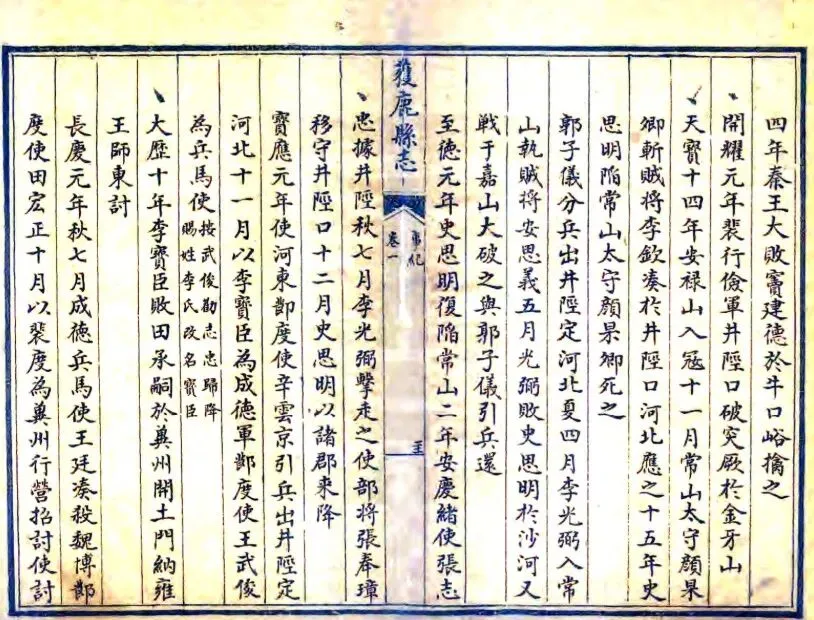 四年秦王大敗竇建德於牛口峪擒之
開耀元年裴行儉軍井陘口破突厥於金牙山
天寶十四年安禄山入寇十一月常山太守顏杲
卿斬賊將李欽湊於井陘口河北應之十五年史
思明陷常山太守顏杲卿死之
郭子儀分兵出井陘定河北夏四月李光弼入常
山執賊將安思義五月光弼敗史思明於沙河又
戰于嘉山大破之與郭子儀引兵還
至德元年史思明復陷常山二年安慶緒使張志
獲鹿縣志
事紀
卷一
忠據井陘秋七月李光弼擊走之使部將張奉璋
移守井陘口十二月史思明以諸郡來降
寶應元年使河東節度使辛雲京引兵出井陘定
河北十一月以李寶臣為成德軍節度使王武俊
為兵馬使按武俊勸志忠歸降
賜姓李氏改名寶臣
大歷十年李寶臣敗田承嗣於冀州開土門納雍
王師東討
長慶元年秋七月成德兵馬使王廷湊殺魏博節
度使田宏正十月以裴度為冀州行營招討使討